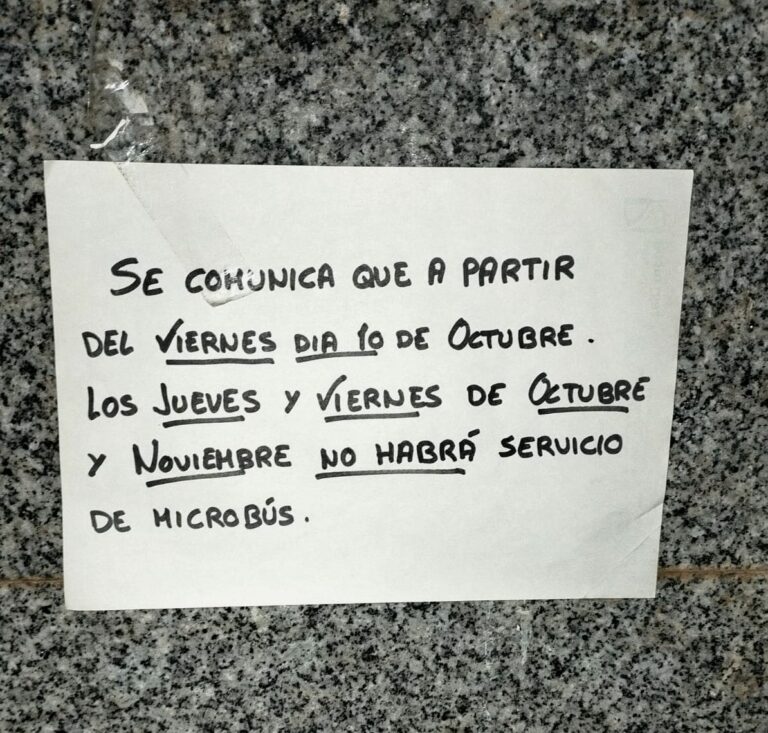 SE COMUNICA QUE A PARTIR
DEL VIERNES DIA 10 DE OCTUBRE.
LOS JUEVES Y VIERNES DE OCTUBRE
Y NOVIEMBRE NO HABRÁ SERVICIO
DE MICROBÚS.